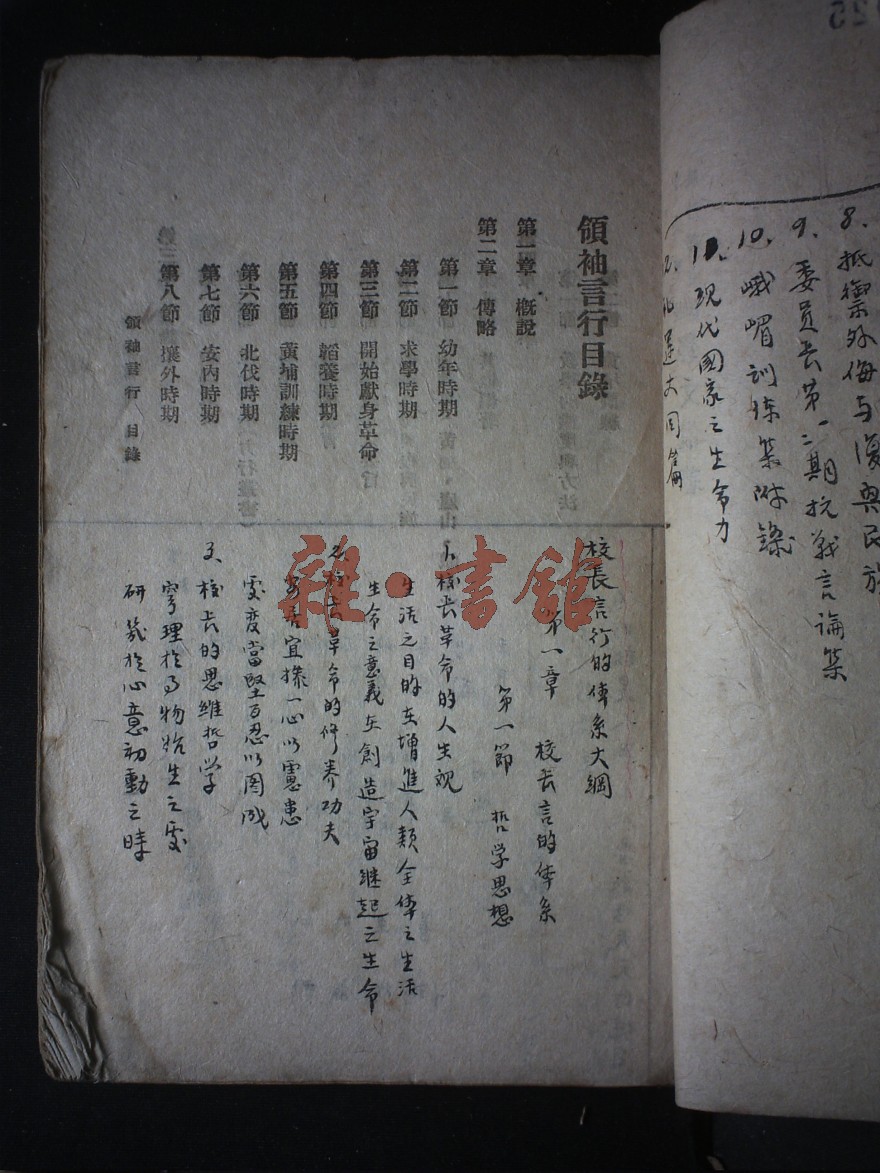 8、抵禦外侮与復興民族
9、委員長第二期抗戰言論集
10、峨嵋訓练集附錄
11、現代國家之生命力
領袖言行目錄
第一章 概說
第二章 傳略
第一節 幼年時期
第二節 求學時期
第三節 開始獻身革命
第四節 韜養時期
第五節 黃埔訓練時期
第六節 北伐時期
第七節 安內時期
第八節 攘外時期
領袖言行 目錄
校長言行的体系大綱
第一章 校長言的体系
第一節 哲学思想
1、校长革命的人生观
生活之目的在增進人類全体之生活
生命之意義在創造宇宙継起之生命
2、校长革命的修养功夫
居宜操一心以慮患
處变當堅百忍以图成
3、校长的思維哲学
窮理於事物始生之處
研幾於心意初動之時
雜·書館